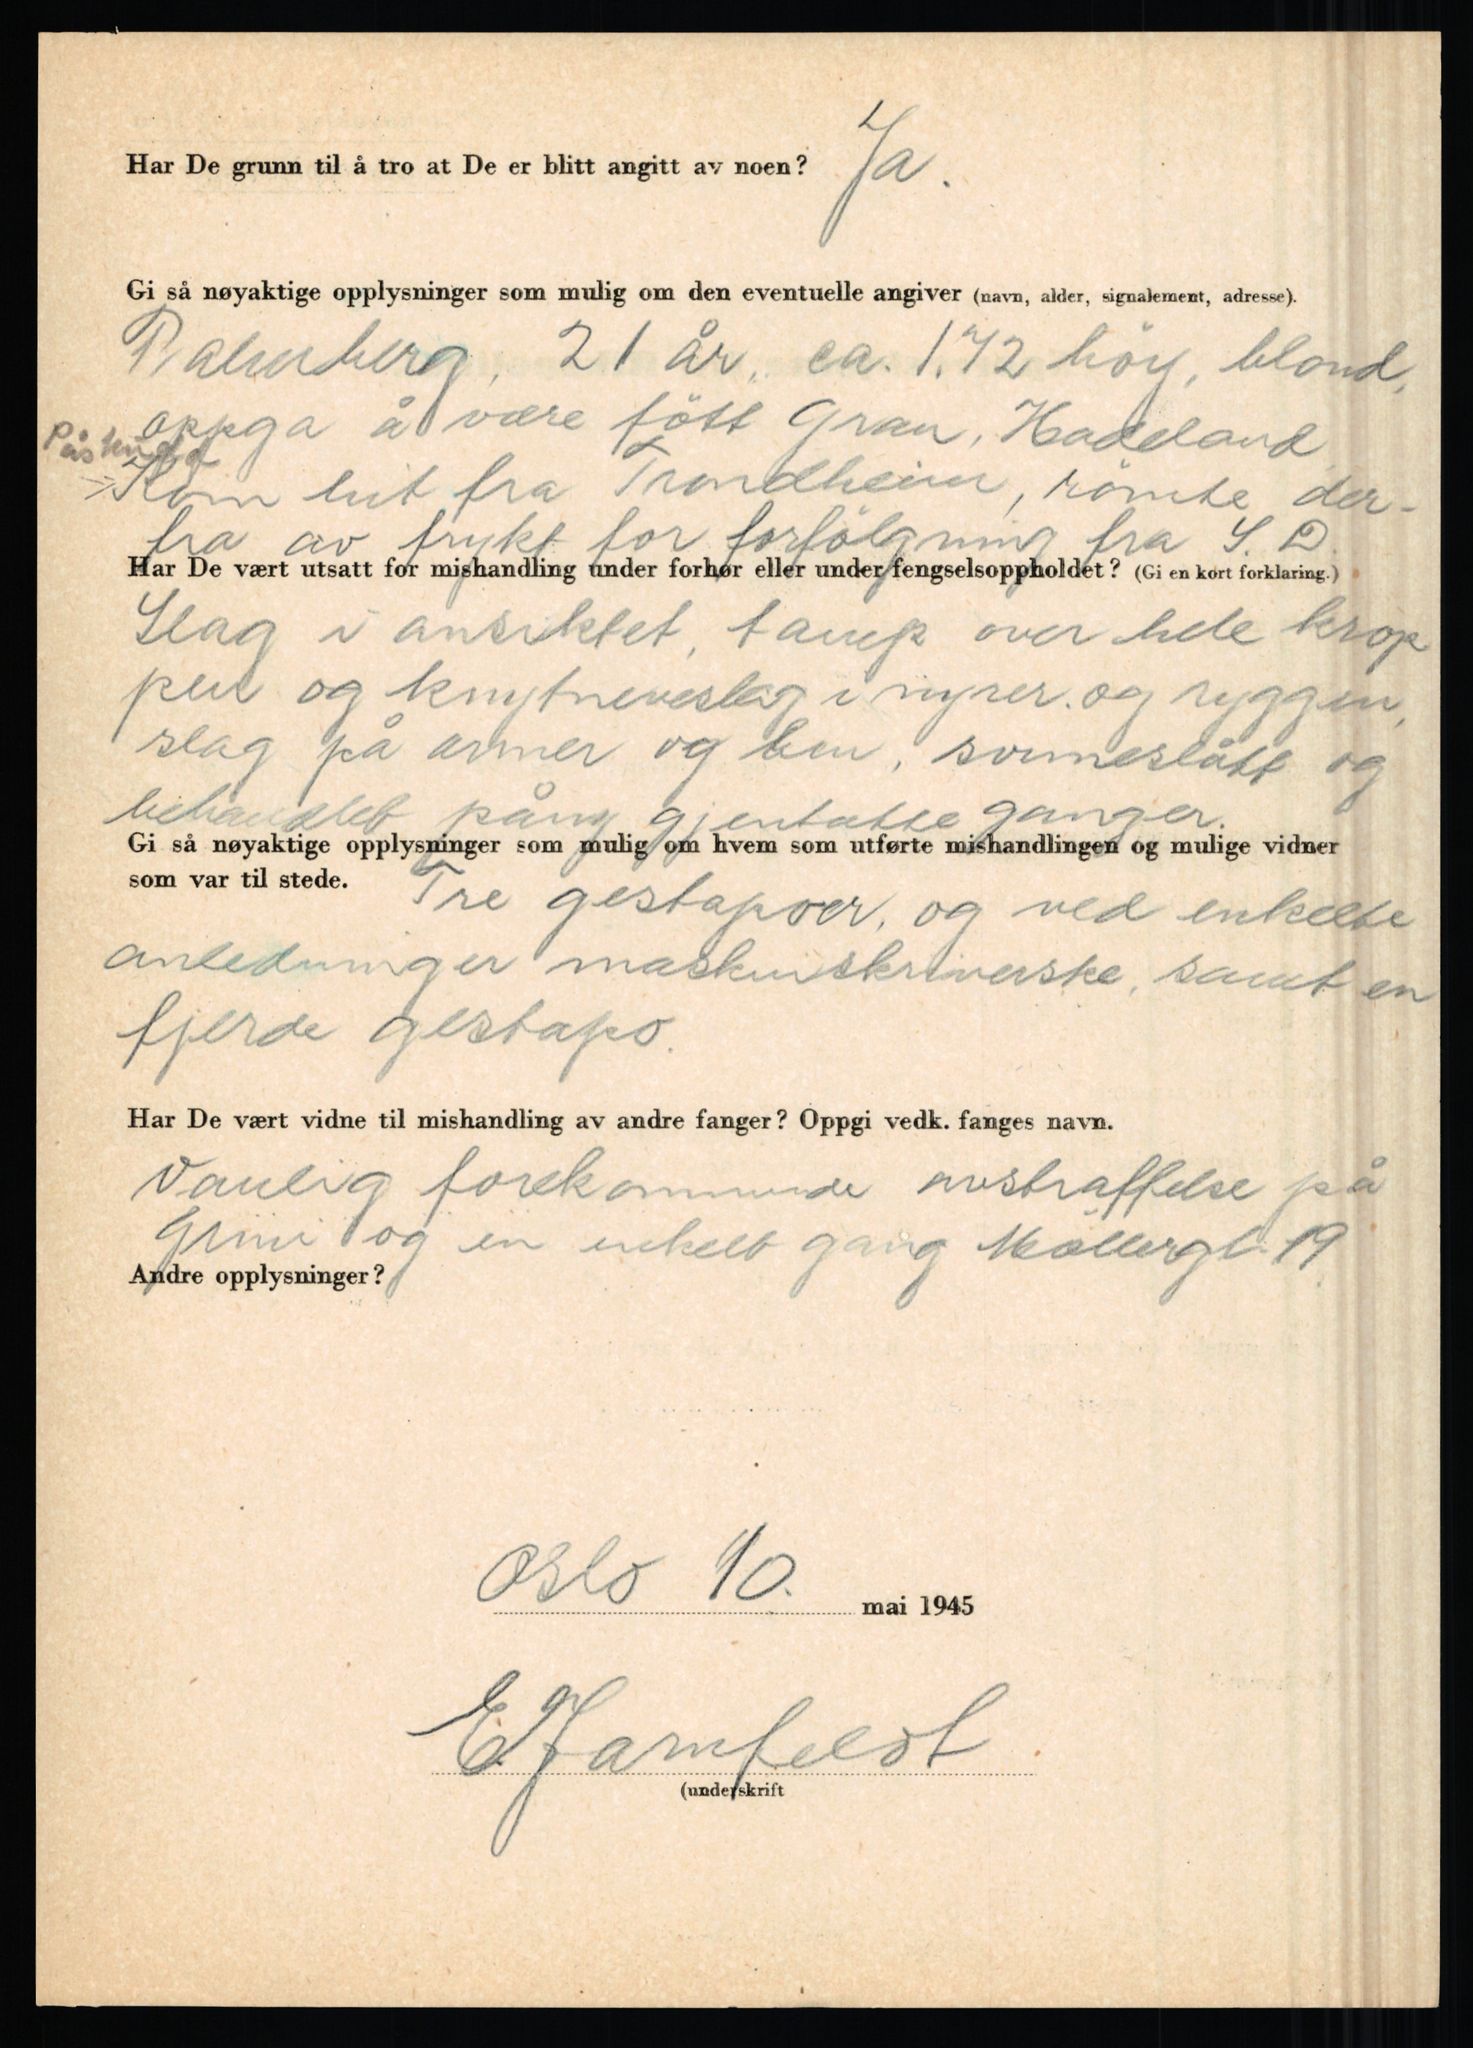 Har De grunn til å tro at De er blitt angitt av noen? Ja.
Gi så nøyaktige opplysninger som mulig om den eventuelle angiver (navn, alder, signalement, adresse).
21 år, ca. 1.72 höy, blond,
oppga å være fött Gran, Hadeland.
Påstund
Kom hit fra Trondheim, römte der-
fra av frykt for forfölgning fra S.D.
Har De vært utsatt for mishandling under forhør eller under fengselsoppholdet? (Gi en kort forklaring.)
Slag i ansiktet, tamp over hele krop
pen og knytneveslag i nyrer og ryggen,
slag på armer og ben, svimeslått og
behandlet påny gjentatte ganger.
Gi så nøyaktige opplysninger som mulig om hvem som utførte mishandlingen og mulige vidner
som var til stede. Tre gestapoer, og ved enkelte
anledninger maskinskriverske, samt en
fjerde gestapo.
Har De vært vidne til mishandling av andre fanger? Oppgi vedk. fanges navn.
Vanlig forekommende avstraffelse på
Grini og en enkelt gang Möllergt. 19
Andre opplysninger?
Oslo 10. mai 1945
E Jarnfeldt
(underskrift